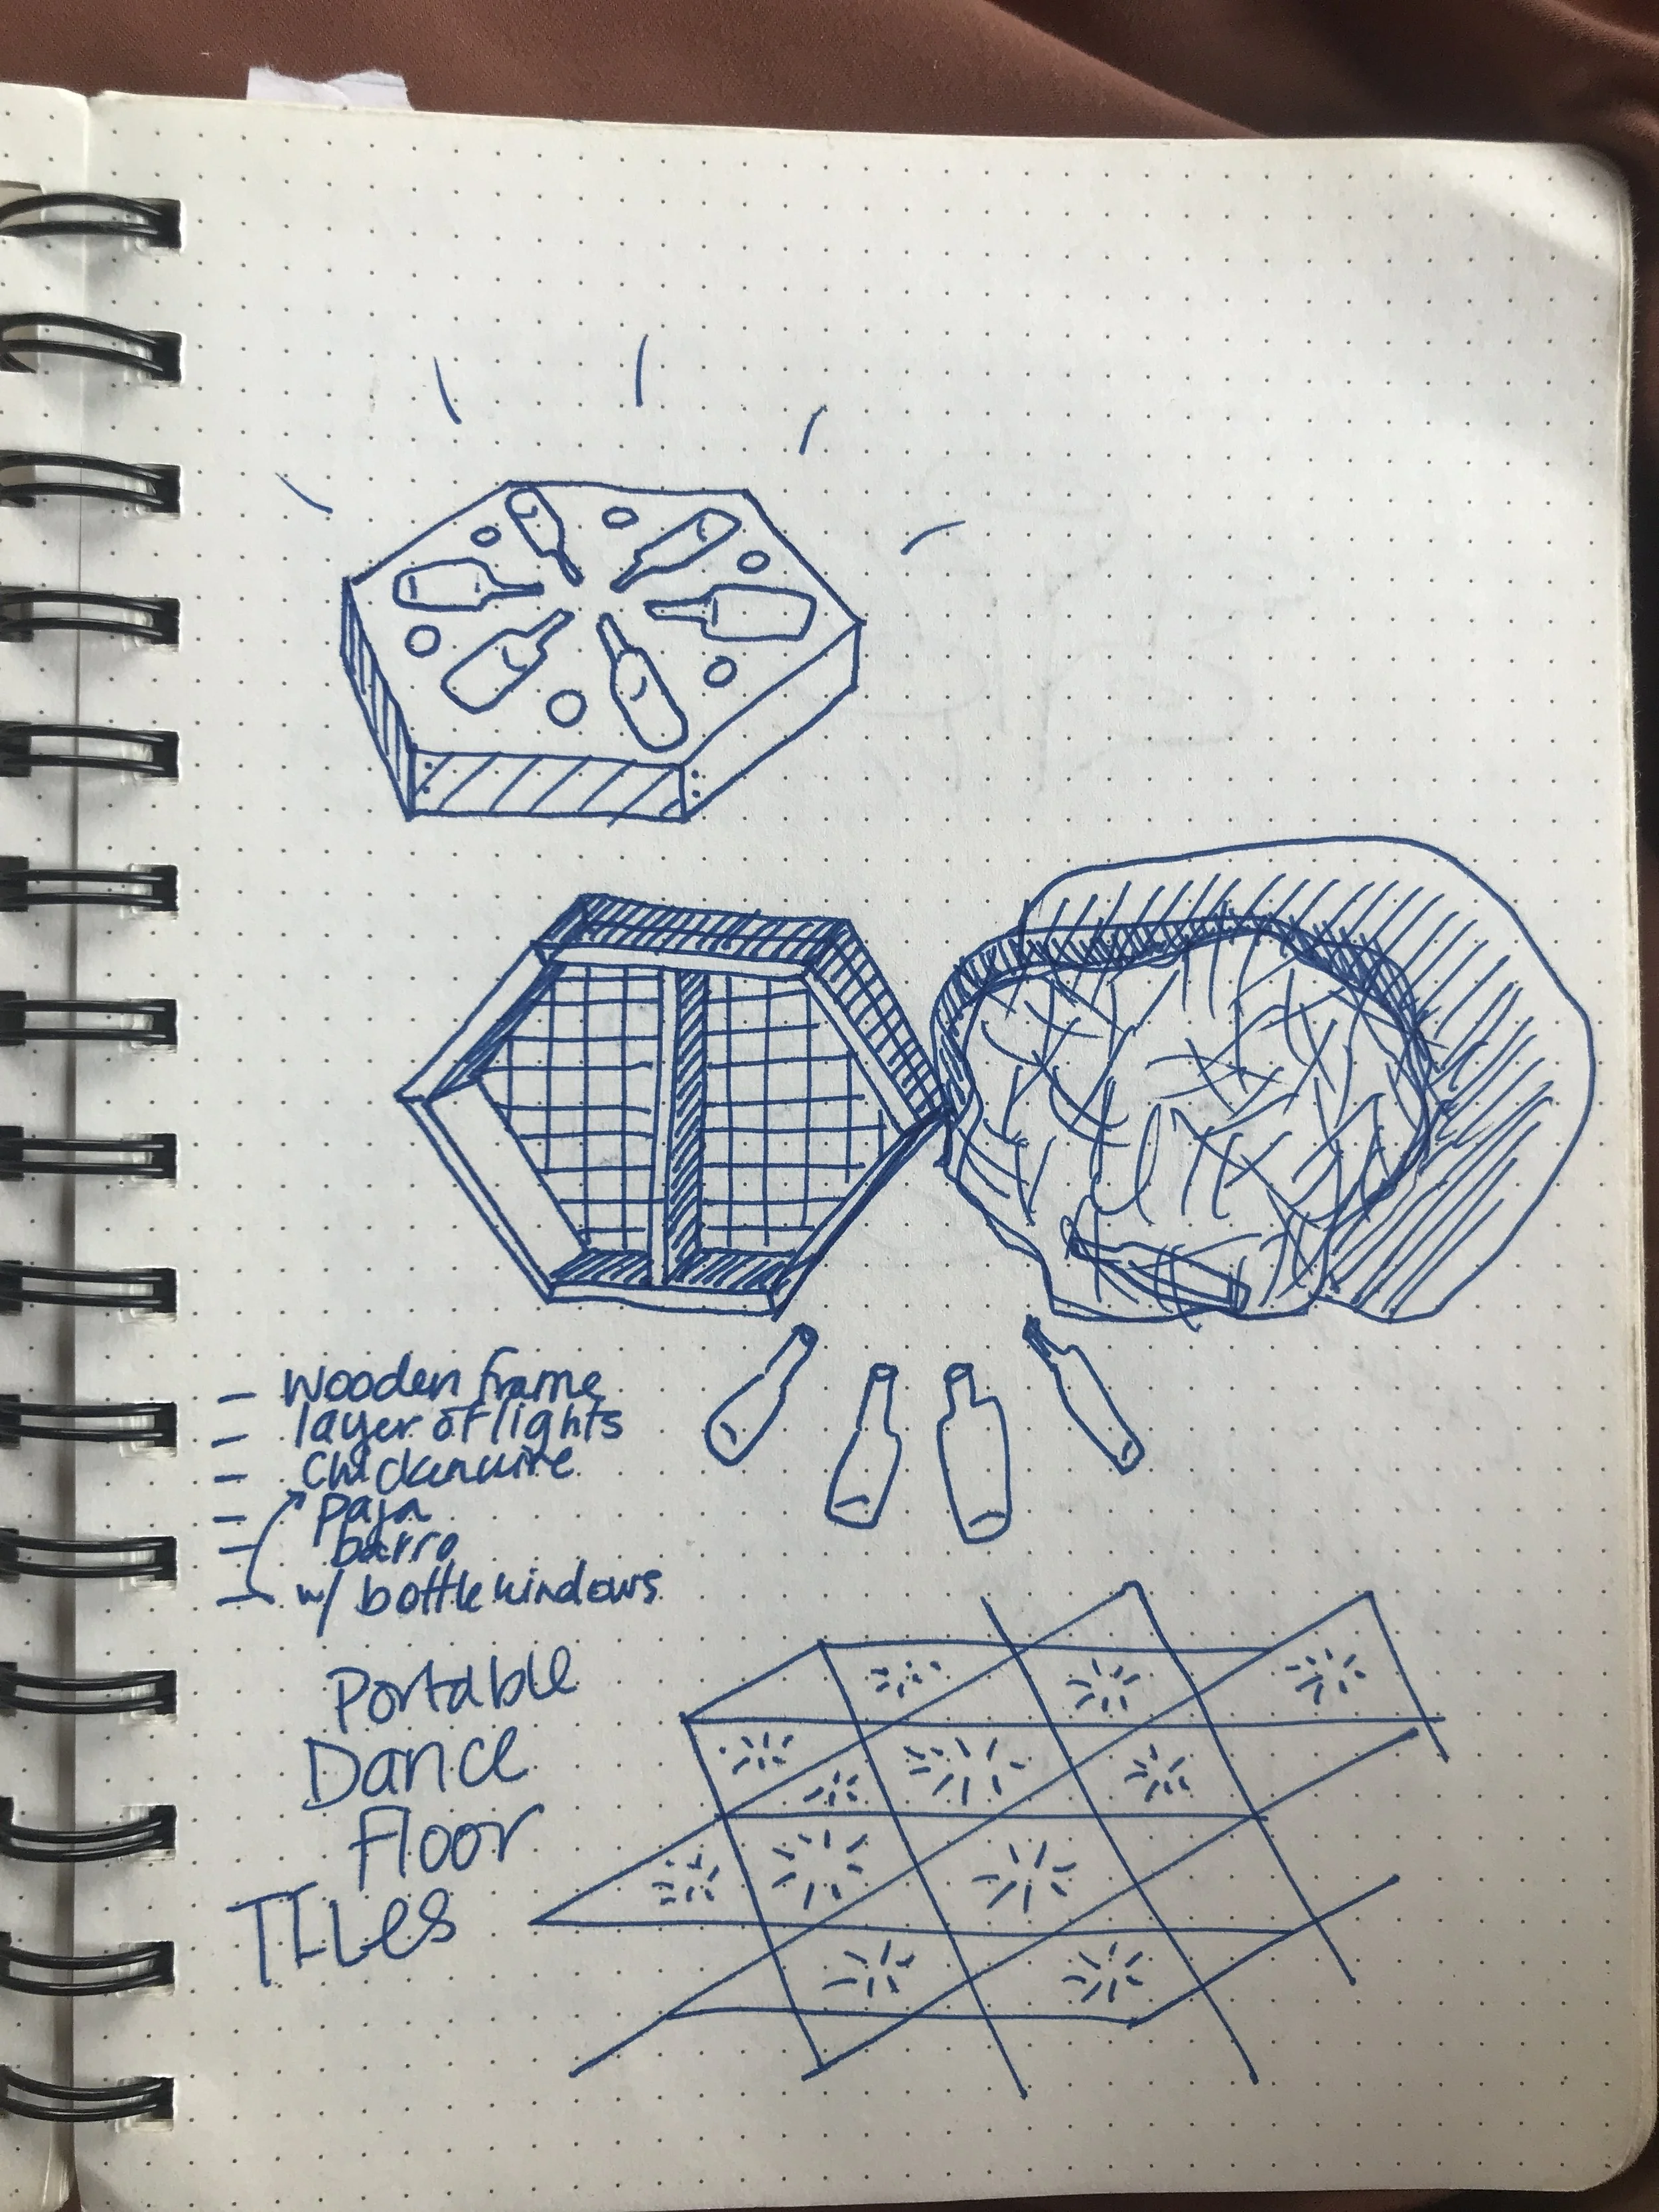 - wooden frame
- layer of lights
- chickenwire
- paja
- barro
- w/ bottle windows
Portable
Dance
Floor
TILes